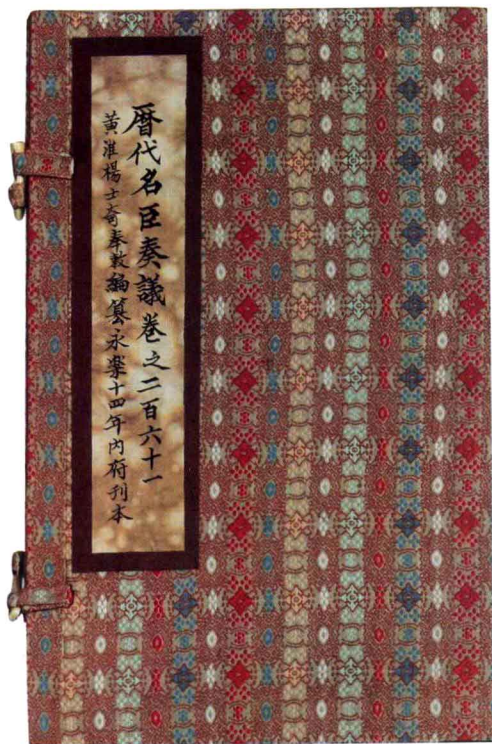 曆代名臣奏議卷之二百六十一
黃淮楊士奇奉敕編纂永樂十四年內府刊本